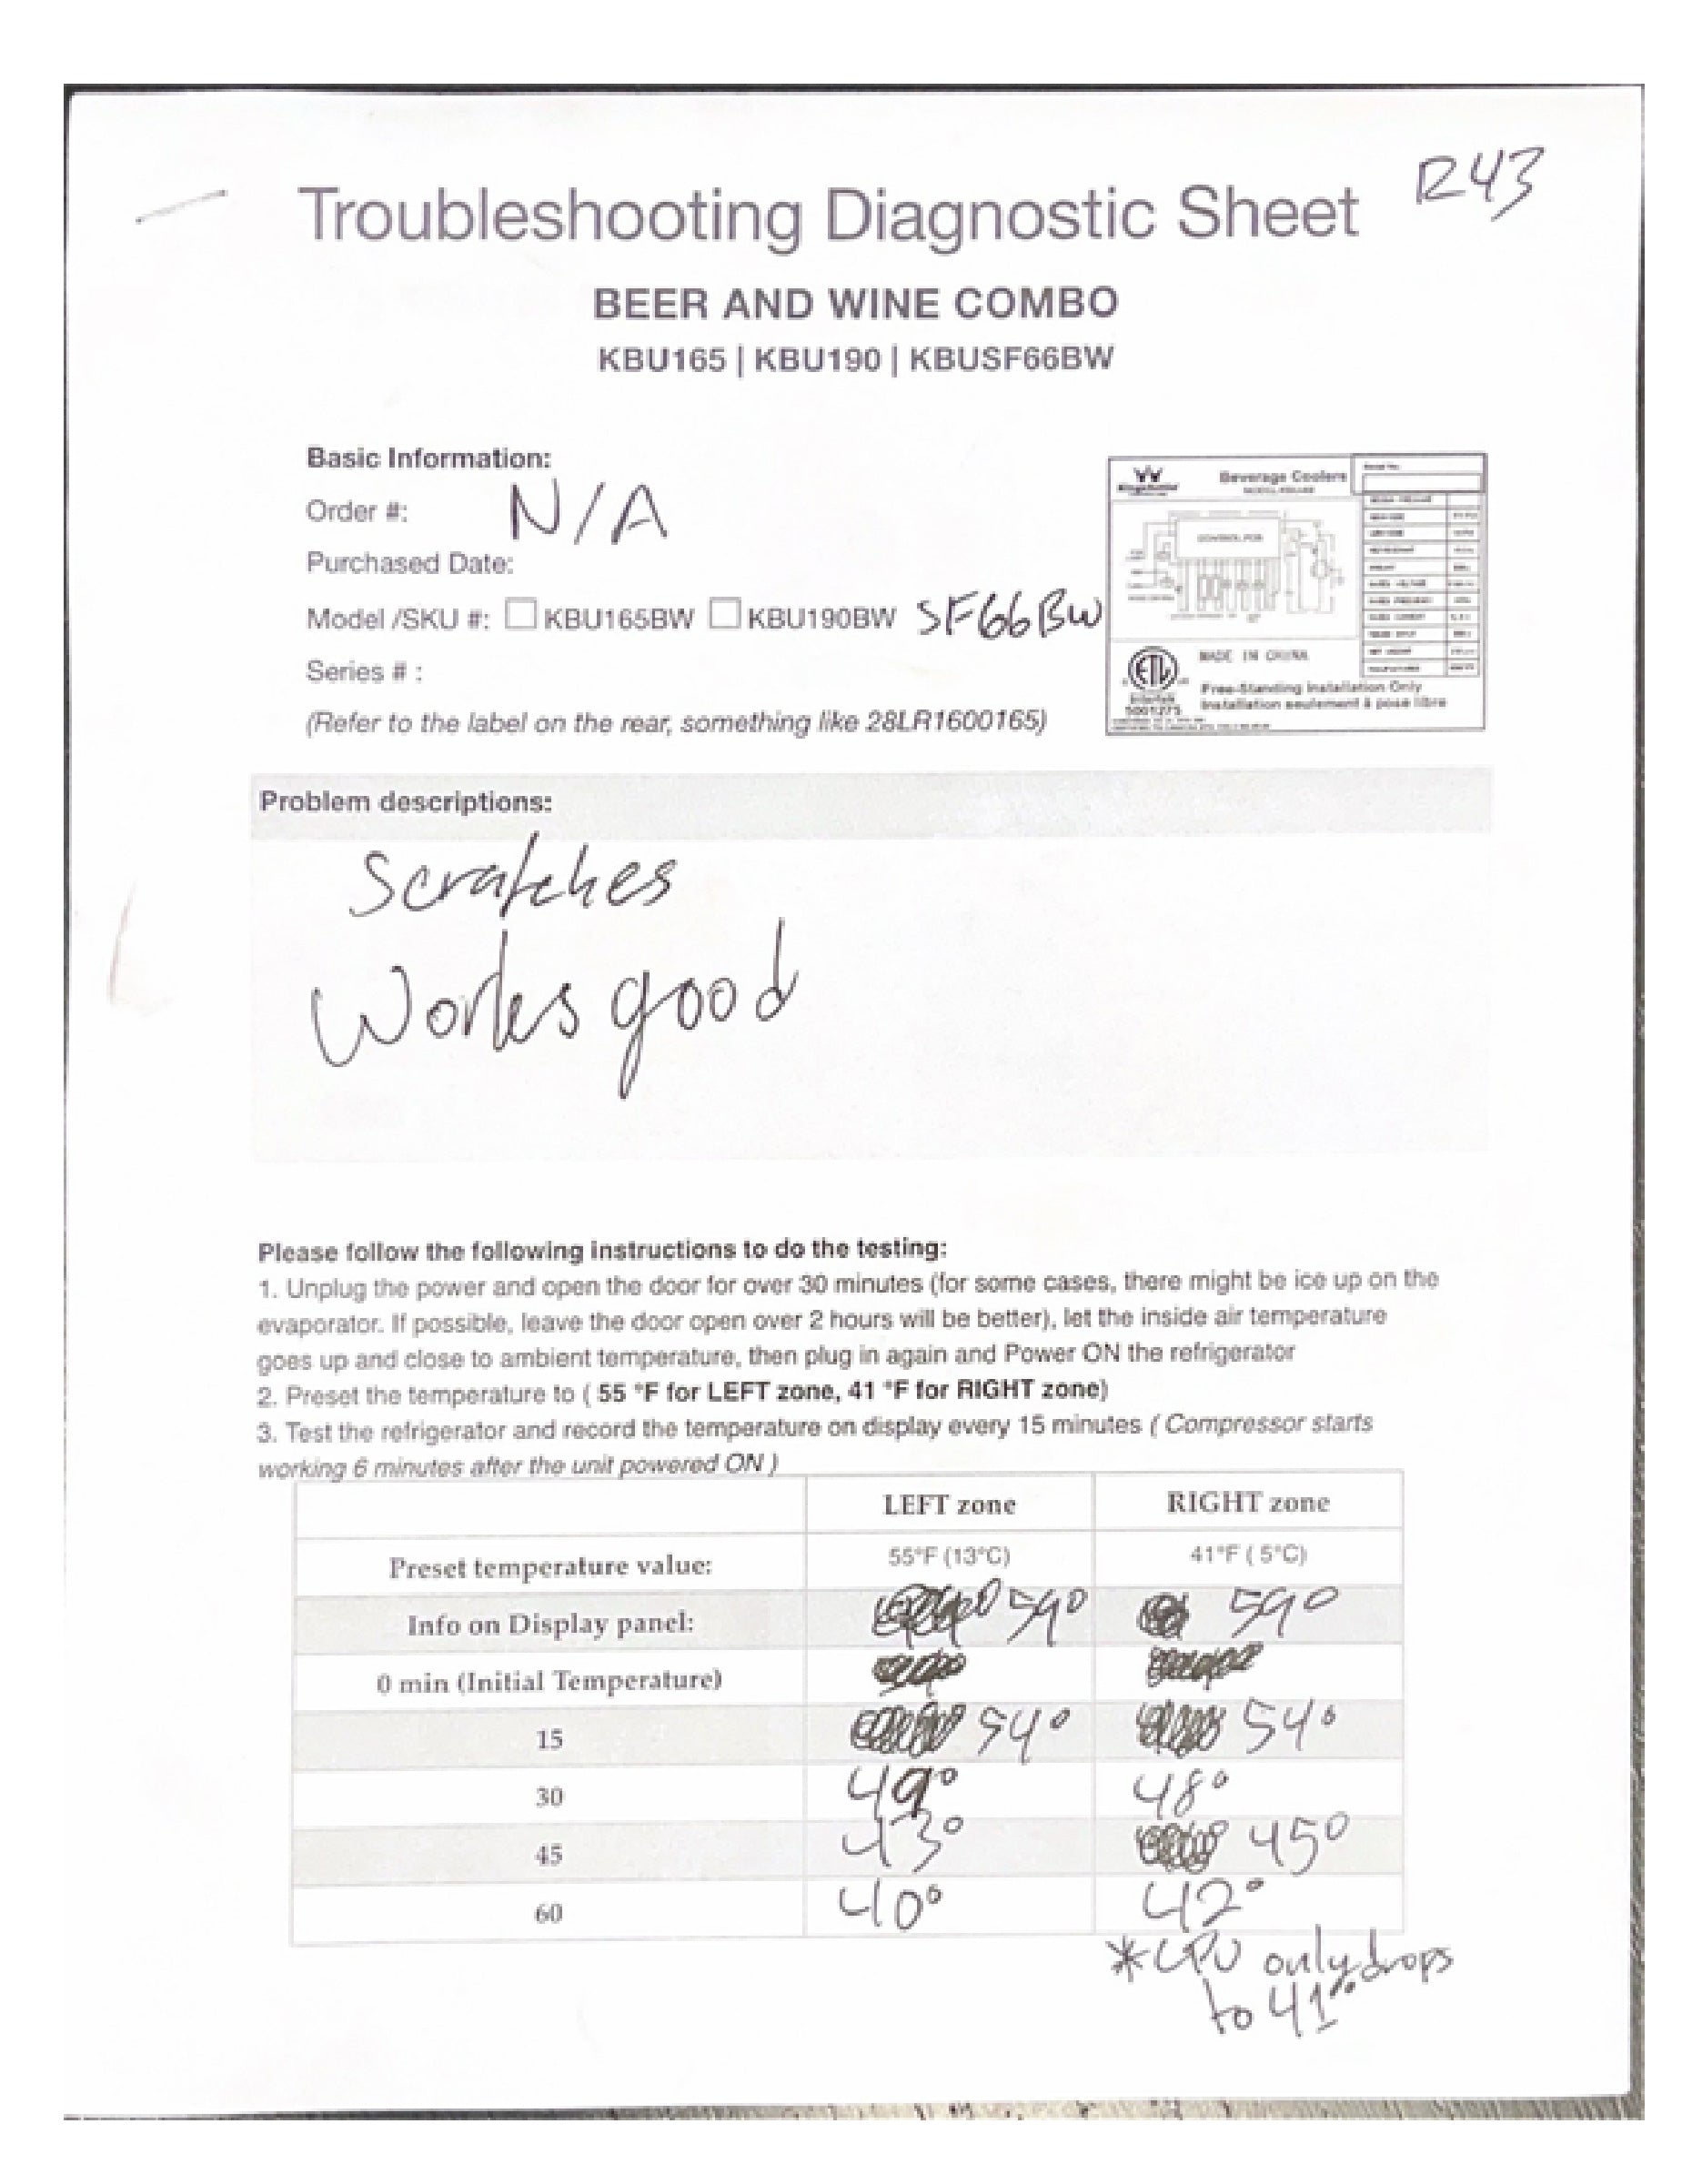 R43
Troubleshooting Diagnostic Sheet
BEER AND WINE COMBO
KBU165 | KBU190 | KBUSF66BW
Basic Information:
Order #: N/A
Purchased Date:
Model /SKU #: KBU165BW KBU190BW SF66BW
Series # :
(Refer to the label on the rear, something like 28LR1600165)
Beverage Coolers
CONTROL PCB
MADE IN CHINA
ETL
Intertek
5001275
Free-Standing Installation Only
Installation seulement à pose libre
Problem descriptions:
Scratches
Works good
Please follow the following instructions to do the testing:
1. Unplug the power and open the door for over 30 minutes (for some cases, there might be ice up on the
evaporator. If possible, leave the door open over 2 hours will be better), let the inside air temperature
goes up and close to ambient temperature, then plug in again and Power ON the refrigerator
2. Preset the temperature to ( 55 °F for LEFT zone, 41 °F for RIGHT zone)
3. Test the refrigerator and record the temperature on display every 15 minutes ( Compressor starts
working 6 minutes after the unit powered ON )
LEFT zone RIGHT zone
Preset temperature value: 55°F (13°C) 41°F ( 5°C)
Info on Display panel: 59° 59°
0 min (Initial Temperature)
15 54° 54°
30 49° 48°
45 43° 45°
60 40° 42°
*CPU only drops
to 41°